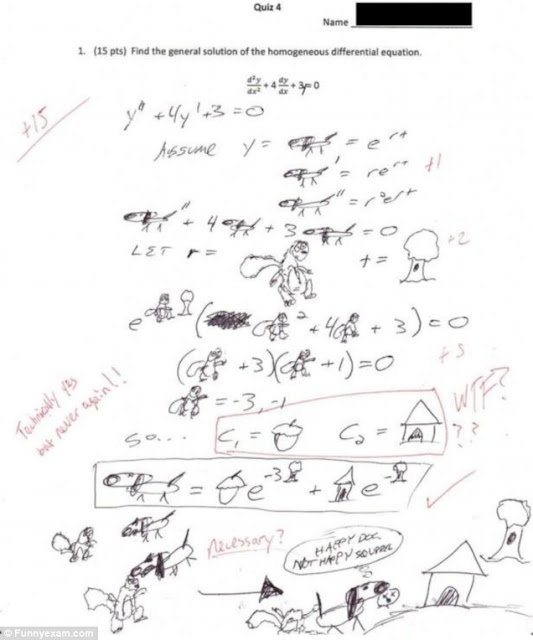 Quiz 4
Name
1. (15 pts) Find the general solution of the homogeneous differential equation.
d²y/dx² + 4 dy/dx + 3y=0
+15
y" + 4y' + 3 = 0
Assume y = = e^rt
' = re^rt +1
" = r²e^rt
" + 4 + 3 = 0
+2
LET r = t =
e ( ² + 4 + 3) = 0
( + 3)( + 1) = 0
+5
= -3, -1
Technically yes
but never again!!
WTF?
??
So... C₁ = C₂ =
= e^-3 + e^-
Necessary?
HAPPY DOG
NOT HAPPY SQUIRREL
© Funnyexam.com